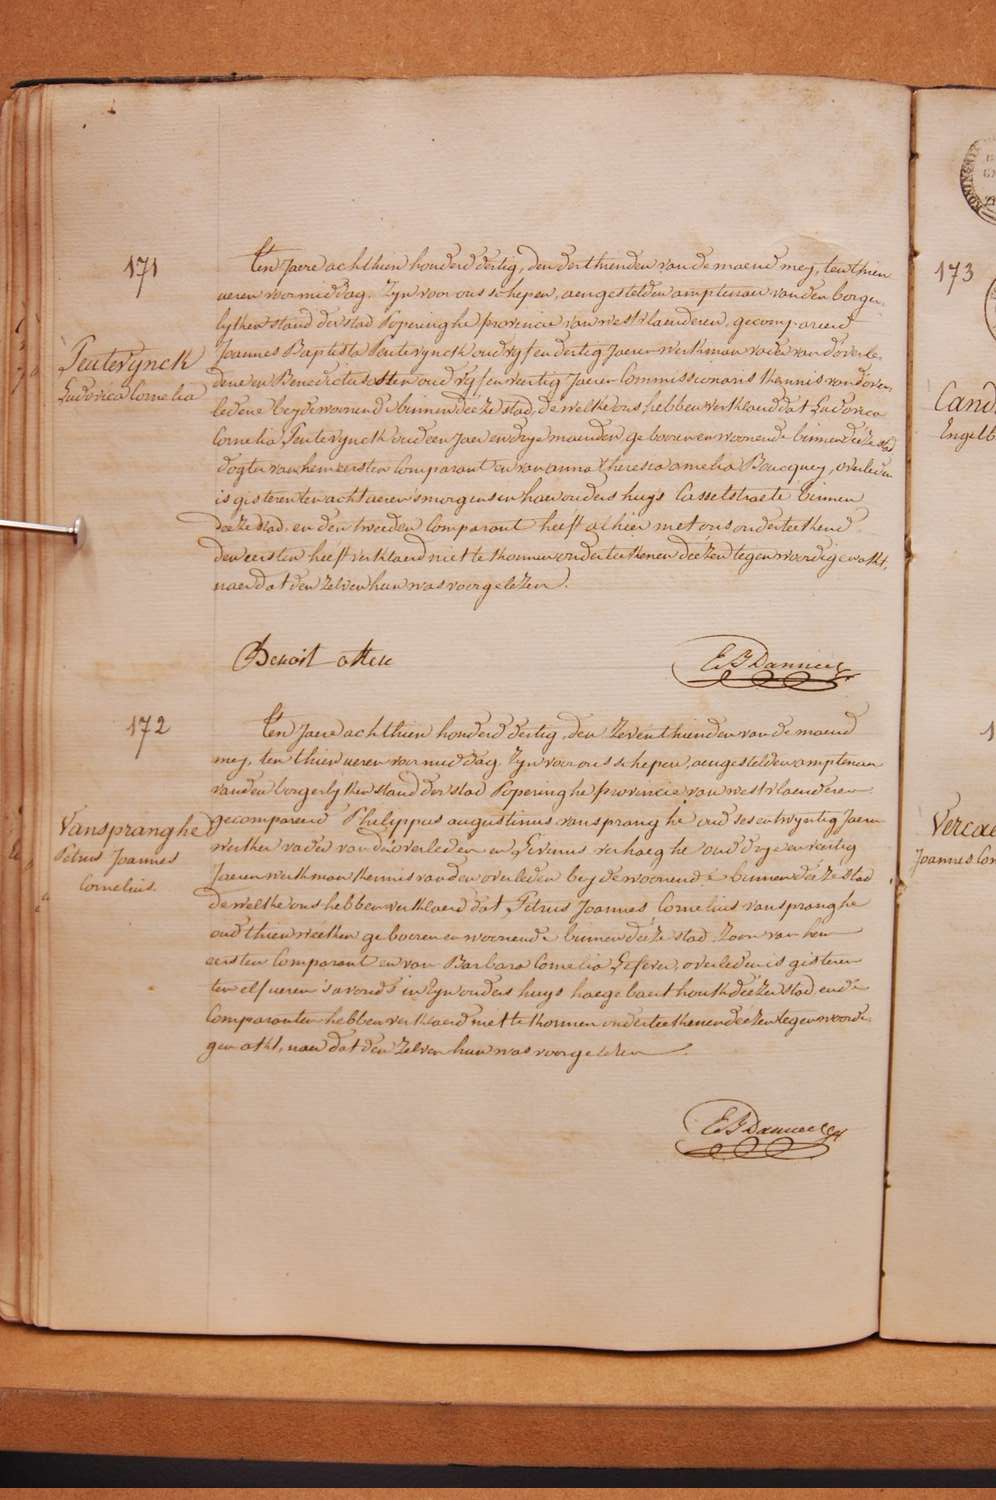 171
Peuterynck
Ludovica Cornelia
Ten Jaere achthien honderd dertig, den derthienden van de maend mey, ten thien
ueren voormiddag. Zyn voor ons schepen, aengestelden amptenaer van den borger-
lyken stand der stad Poperinghe provincie van westvlaenderen, gecompareerd
Joannes Baptista Peuterynck oud vyf en dertig Jaeren werkman vader van d'overle-
dene en Benedictus otten oud vyf en veertig Jaeren Commissionaris kennis van d'over-
ledene beyde woonende binnen deeze stad, de welke ons hebben verklaerd dat Ludovica
Cornelia Peuterynck oud een Jaer en drye maenden gebooren en woonende binnen deeze stad
dogter van hem eersten Comparant en van anna theresia amelia Boucquey, overleden
is gisteren ten acht ueren 's morgens in haer ouders huys Casselstraete binnen
deeze stad. en den tweeden Comparant heeft alhier met ons onderteekend
den eersten heeft verklaerd niet te konnen onderteekenen deezen tegenwoordigen akt,
naer dat den zelven hun was voorgelezen.
Benoit otten
172
Vanspranghe
Petrus Joannes
Cornelius.
Ten Jaere achthien honderd dertig, den zeventhienden van de maend
mey, ten thien ueren voormiddag. Zyn voor ons schepen, aengestelden amptenaer
van den borgerlyken stand der stad Poperinghe provincie van westvlaenderen
gecompareerd Philippus augustinus vanspranghe oud ses en twyntig Jaeren
werkm vader van den overleden en Livinus verhaeghe oud drye en veertig
Jaeren werkman kennis van den overleden beyde woonende binnen deeze stad
de welke ons hebben verklaerd dat Petrus Joannes Cornelius vanspranghe
oud thien weeken gebooren en woonende binnen deeze stad. Zoon van hem
eersten Comparant en van Barbara Cornelia Lefever, overleden is gisteren
ten elf ueren 's avonds in zyn ouders huys haegebaert houk deezer stad, en de
Comparanten hebben verklaerd niet te konnen onderteekenen deezen tegenwoordi-
gen akt, naer dat den zelven hun was voorgelezen.
173